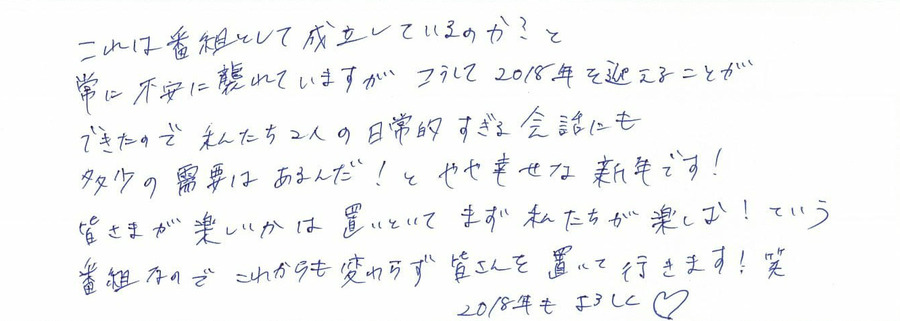 これは番組として成立しているのか？と
常に不安に襲れていますが こうして2018年を迎えることが
できたので 私たち2人の日常的すぎる会話にも
多少の需要はあるんだ！と やや幸せな新年です！
皆さまが楽しいかは置いといて まず私たちが楽しむ！という
番組なので これからも変わらず皆さんを置いて行きます！笑
2018年もよろしく♡